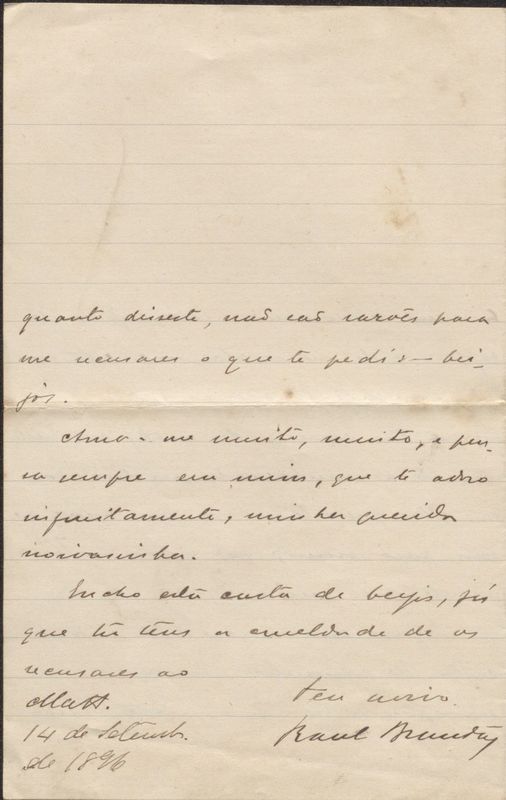 quanto disseste, não são razões para
me recusares o que te pedi: — bei-
jos.
Ama-me muito, muito, e pen-
sa sempre em mim, que te adoro
infinitamente, minha querida
noivasinha.
Encho esta carta de beijos, já
que tu tens a crueldade de os
recusares ao
teu noivo.
Raul Brandão
14 de Setemb.
de 1896